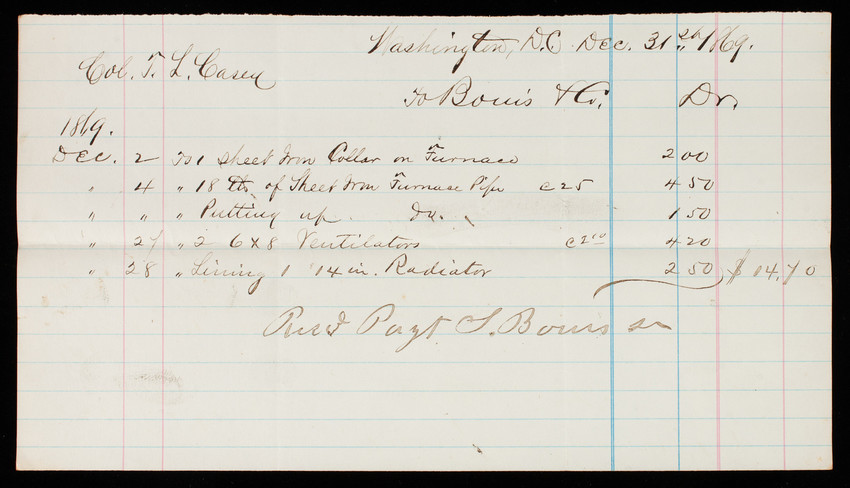 Washington, D.C. Dec. 31st 1869.
Col. T. L. Casey
To Bouis & Co. Dr.
1869.
Dec. 2 To 1 Sheet Iron Collar on Furnace 2 00
" 4 " 18 lbs of Sheet Iron Furnace Pipe @ 25 4 50
" " " Putting up do. 1 50
" 27 " 2 6x8 Ventilators @ 2 10 4 20
" 28 " Lining 1 14 in. Radiator 2 50 $ 14.70
Rec'd Payt S. Bouis